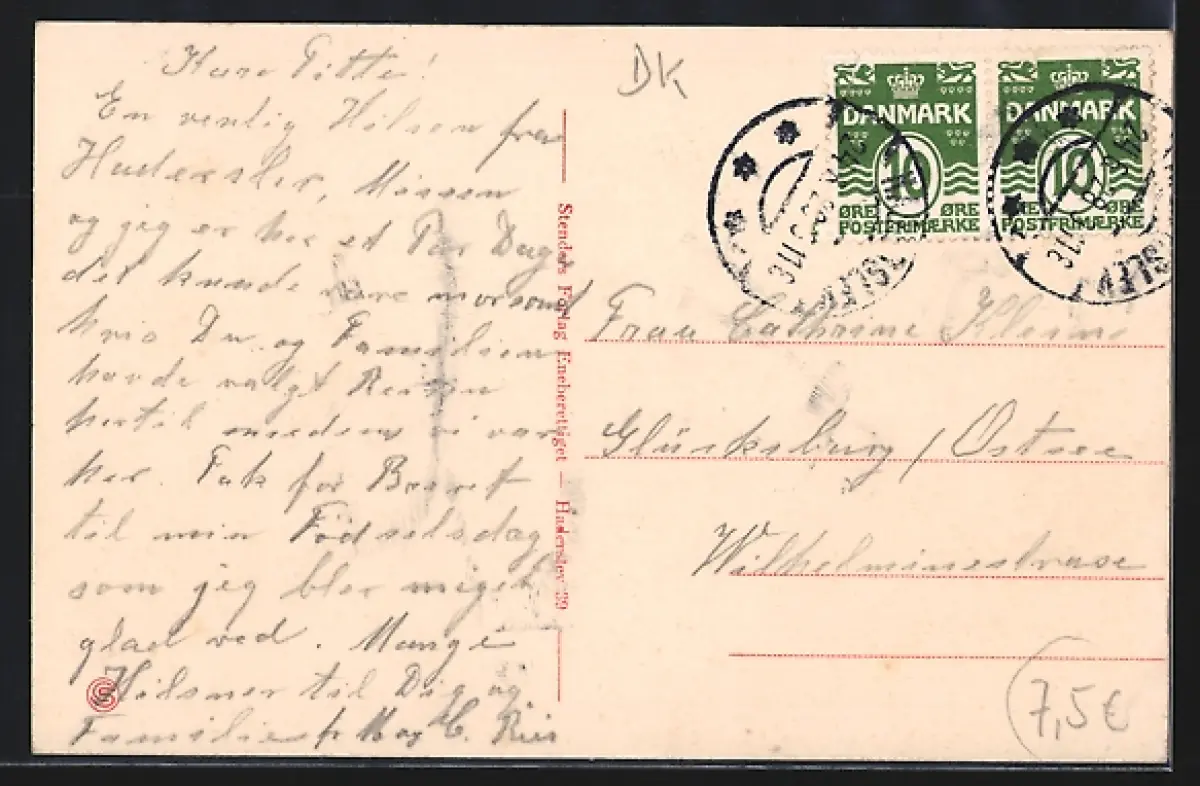 Kære Titte!
En venlig Hilsen fra
Haderslev, Missen
og jeg er her et Par Dage
det kunde være morsomt
hvis Du og Familien
havde valgt Reisen
hertil medens vi var
her. Tak for Brevet
til min Fødselsdag
som jeg blev meget
glad ved. Mange
Hilsner til Dig og
Familie fr M og C. Ries
Stenders Forlag Eneberettiget — Haderslev 39
S
DK
DANMARK
10
ØRE ØRE
POSTFRIMÆRKE
DANMARK
10
ØRE ØRE
POSTFRIMÆRKE
Frau Cathrine
Glücksburg / Ostsee
Wilhelminestrase
7,5€